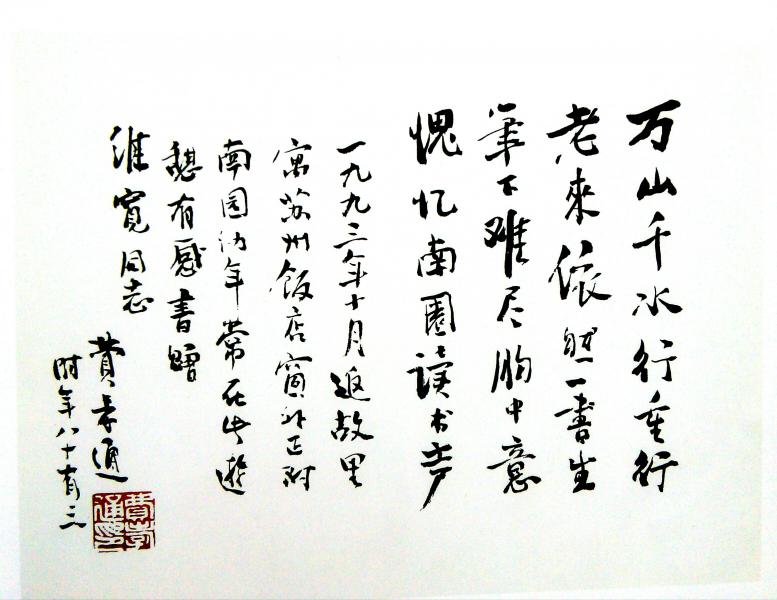 万山千水行重行
老来依然一书生
笔下难尽胸中意
愧忆南园读书声
一九九三年十月返故里
寓苏州饭店窗外正附
南园幼年常在此游
憩有感书赠
淮宽同志
费孝通
时年八十有三
费孝通印